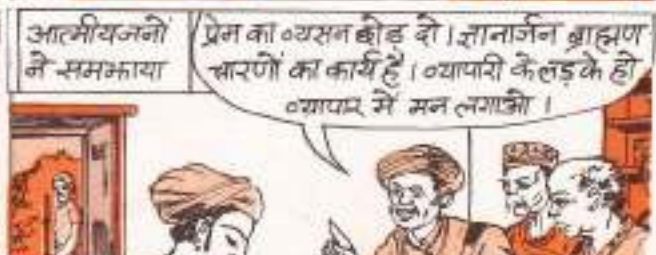 आत्मीयजनों
ने समझाया
प्रेम का व्यसन छोड़ दो । ज्ञानार्जन ब्राह्मण
चारणों का कार्य है । व्यापारी के लड़के हो
व्यापार में मन लगाओ ।